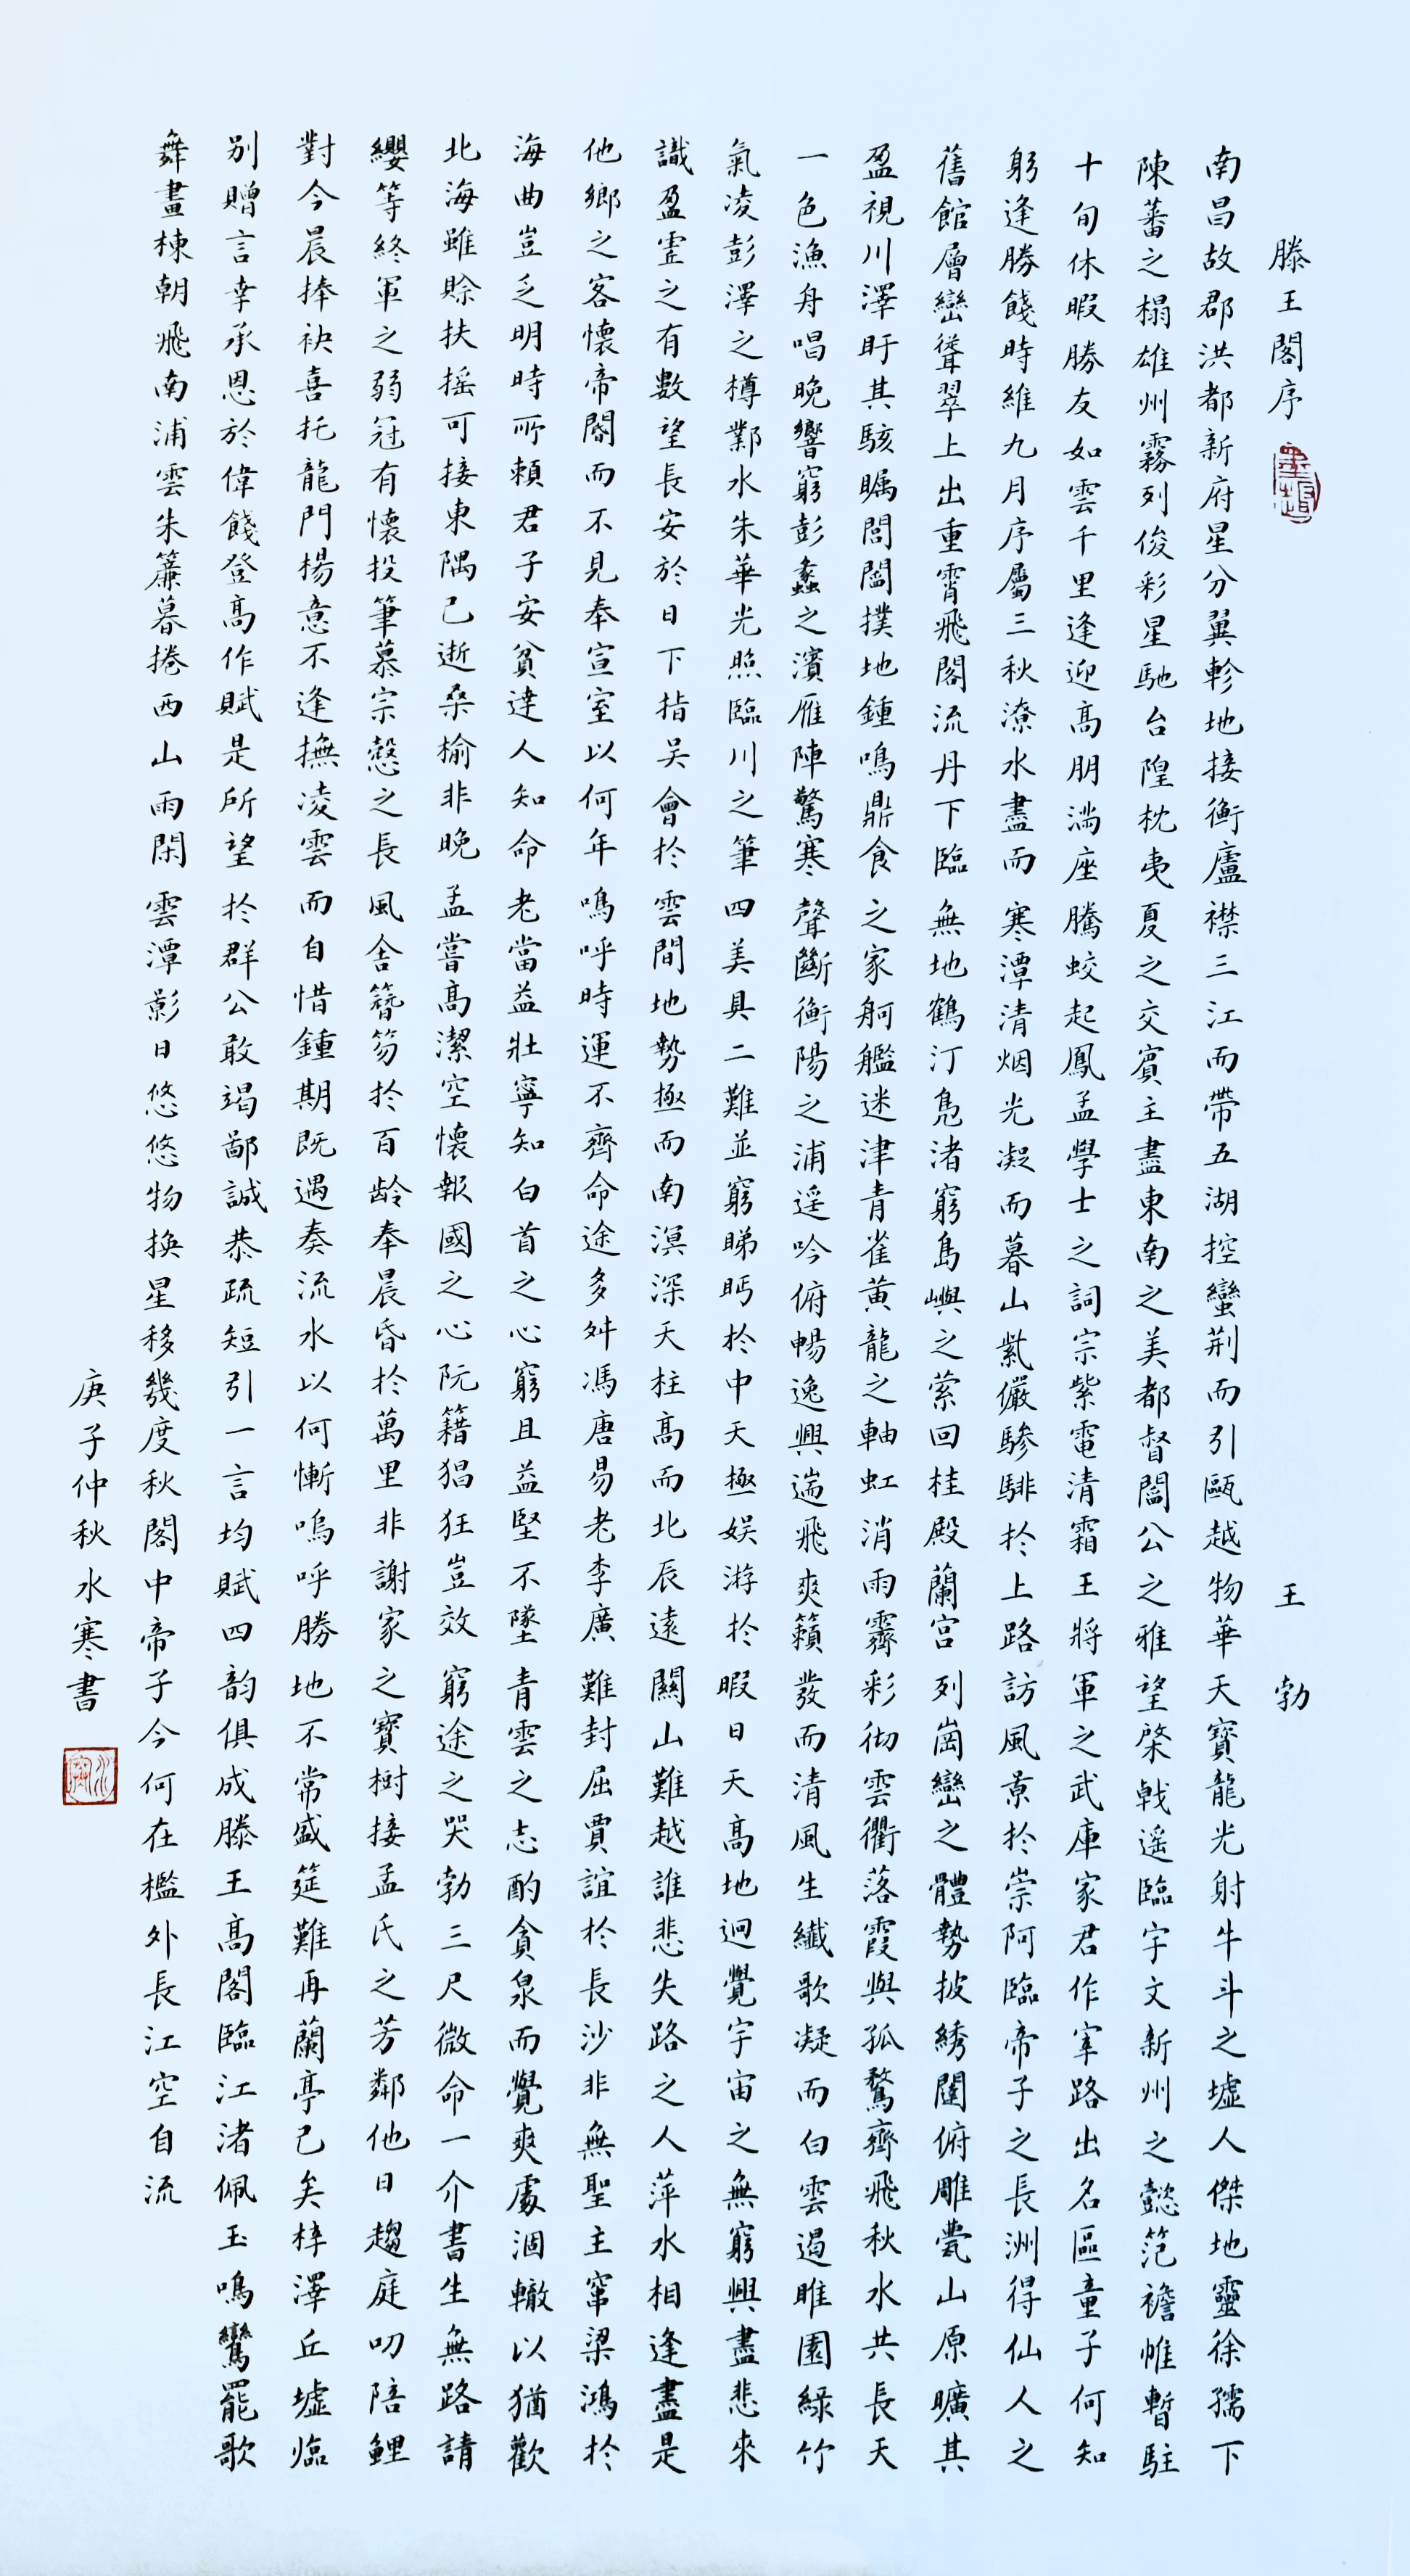 滕王閣序 王勃
南昌故郡洪都新府星分翼軫地接衡廬襟三江而帶五湖控蠻荆而引甌越物華天寶龍光射牛斗之墟人傑地靈徐孺下
陳蕃之榻雄州霧列俊彩星馳台隍枕夷夏之交賓主盡東南之美都督閻公之雅望棨戟遥臨宇文新州之懿范襜帷暫駐
十旬休暇勝友如雲千里逢迎高朋滿座騰蛟起鳳孟學士之詞宗紫電清霜王將軍之武庫家君作宰路出名區童子何知
躬逢勝餞時維九月序屬三秋潦水盡而寒潭清烟光凝而暮山紫儼驂騑於上路訪風景於崇阿臨帝子之長洲得仙人之
舊館層巒聳翠上出重霄飛閣流丹下臨無地鶴汀鳬渚窮島嶼之萦回桂殿蘭宫列崗巒之體勢披綉闥俯雕甍山原曠其
盈視川澤盱其駭矚閭閻撲地鍾鳴鼎食之家舸艦迷津青雀黄龍之軸虹消雨霽彩彻雲衢落霞與孤鶩齊飛秋水共長天
一色漁舟唱晚響窮彭蠡之濱雁陣驚寒聲斷衡陽之浦遥吟俯暢逸興遄飛爽籟發而清風生纖歌凝而白雲遏睢園緑竹
氣凌彭澤之樽鄴水朱華光照臨川之筆四美具二難並窮睇眄於中天極娱游於暇日天高地迥覺宇宙之無窮興盡悲來
識盈虚之有數望長安於日下指吴會於雲間地勢極而南溟深天柱高而北辰遠關山難越誰悲失路之人萍水相逢盡是
他鄉之客懷帝閽而不見奉宣室以何年鳴呼時運不齊命途多舛馮唐易老李廣難封屈賈誼於長沙非無聖主窜梁鴻於
海曲豈乏明時所賴君子安貧達人知命老當益壯寧知白首之心窮且益堅不墜青雲之志酌貪泉而覺爽處涸轍以猶歡
北海雖賒扶摇可接東隅已逝桑榆非晚孟嘗高潔空懷報國之心阮籍猖狂豈效窮途之哭勃三尺微命一介書生無路請
纓等終軍之弱冠有懷投筆慕宗慤之長風舍簪笏於百龄奉晨昏於萬里非謝家之寶樹接孟氏之芳鄰他日趨庭叨陪鯉
對今晨捧袂喜托龍門楊意不逢撫凌雲而自惜鍾期既遇奏流水以何慚嗚呼勝地不常盛筵難再蘭亭已矣梓澤丘墟臨
别贈言幸承恩於偉餞登高作賦是所望於群公敢竭鄙誠恭疏短引一言均賦四韵俱成滕王高閣臨江渚佩玉鳴鸞罷歌
舞畫棟朝飛南浦雲朱簾暮捲西山雨閑雲潭影日悠悠物换星移幾度秋閣中帝子今何在檻外長江空自流
庚子仲秋水寒書